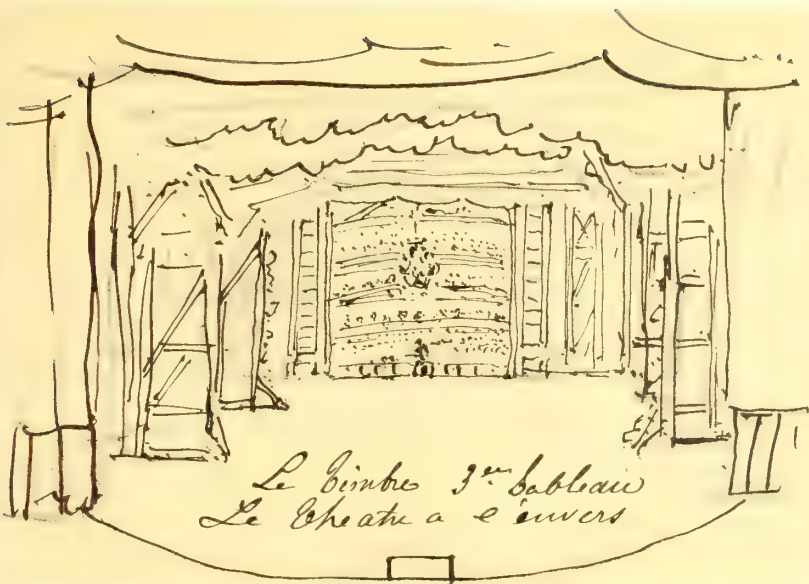 Le Timbre 3em tableau
Le Theatre a l'envers